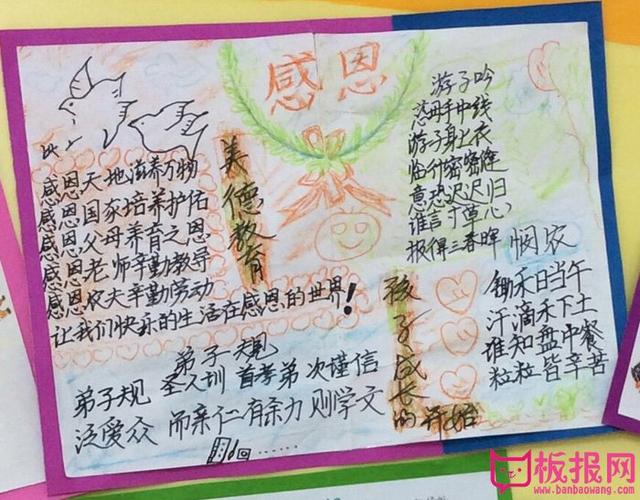 感恩
感恩天地滋养万物
感恩国家培养护佑
感恩父母养育之恩
感恩老师辛勤教导
感恩农夫辛勤劳动
让我们快乐的生活在感恩的世界！
美德教育
游子吟
慈母手中线
游子身上衣
临行密密缝
意恐迟迟归
谁言寸草心
报得三春晖
悯农
锄禾日当午
汗滴禾下土
谁知盘中餐
粒粒皆辛苦
孩子成长的开始
弟子规
弟子规 圣人训 首孝弟 次谨信
泛爱众 而亲仁 有余力 则学文
板报网
www.banbaowang.com